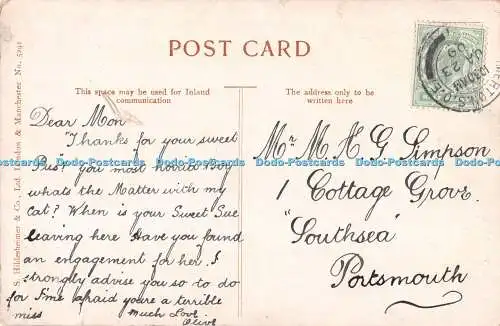 POST CARD
This space may be used for Inland
communication
The address only to be
written here
S. Hildesheimer & Co., Ltd. London & Manchester. No. 5241
Dear Mon
"Thanks for your sweet
Pus! you most horrid Boy
whats the Matter with my
Cat? When is your Sweet Sue
leaving here Have you found
an engagement for her. I
strongly advise you so to do
for I'me afraid you're a terrible
miss Much Love
Olive
Mr M. H. G Simpson
1 Cottage Grove
"Southsea"
Portsmouth
JA 23
Dodo-Postcards Dodo-Postcards Dodo-Postcards Dodo-Postcards Dodo-Postcards
Dodo-Postcards Dodo-Postcards Dodo-Postcards Dodo-Postcards Dodo-Postcards